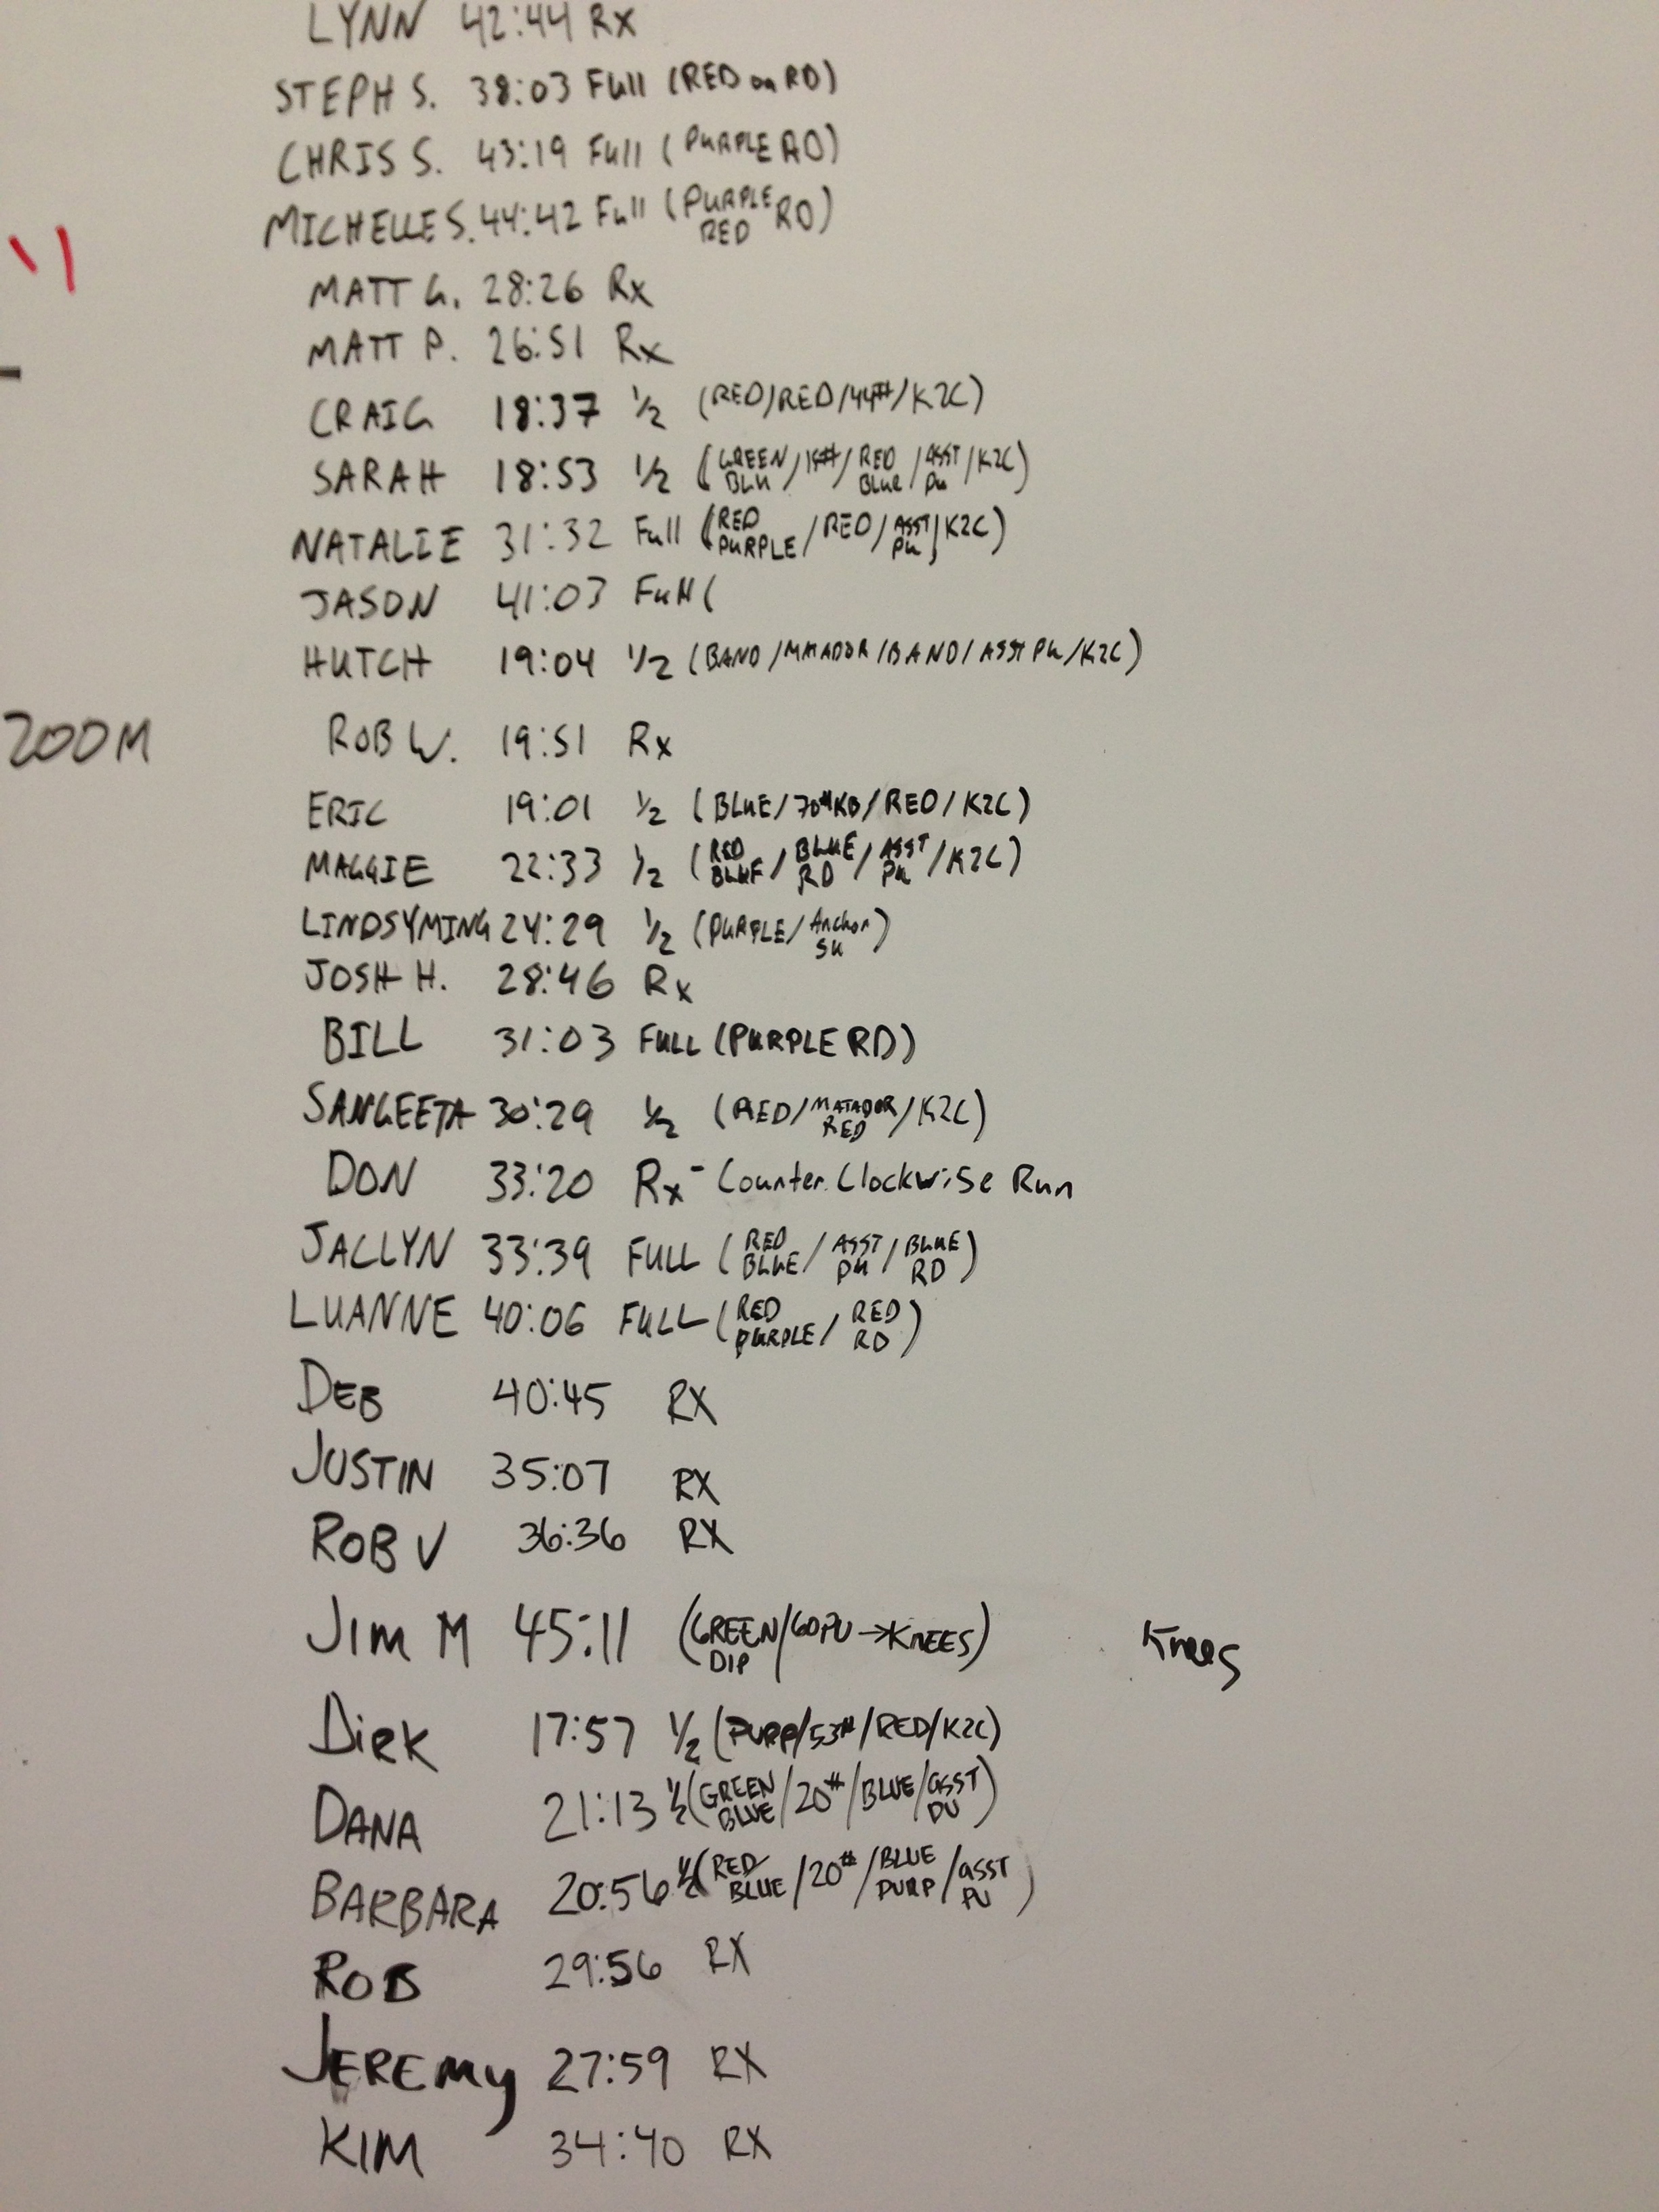 LYNN 42:44 Rx
STEPH S. 38:03 Full (RED on RD)
CHRIS S. 43:19 Full (PURPLE RD)
MICHELLE S. 44:42 Full (PURPLE RD)
RED
MATT G. 28:26 Rx
MATT P. 26:51 Rx
CRAIG 18:37 1/2 (RED/RED/44#/K2C)
SARAH 18:53 1/2 (GREEN/15#/RED/ASST/K2C)
BLU BLUE PU
NATALIE 31:32 Full (RED/RED/ASST/K2C)
PURPLE PU
JASON 41:03 Full (
HUTCH 19:04 1/2 (BAND/MATADOR/BAND/ASST PU/K2C)
200M ROB W. 19:51 Rx
ERIC 19:01 1/2 (BLUE/70#KB/RED/K2C)
MAGGIE 22:33 1/2 (RED/BLUE/ASST/K2C)
BLUE RD PU
LINDSYMING 24:29 1/2 (PURPLE/Anchor)
SU
JOSH H. 28:46 Rx
BILL 31:03 FULL (PURPLE RD)
SANGEETA 30:29 1/2 (RED/MATADOR/K2C)
RED
DON 33:20 Rx - Counter Clockwise Run
JACLYN 33:39 FULL (RED/ASST/BLUE)
BLUE PU RD
LUANNE 40:06 FULL (RED/RED)
PURPLE RD
DEB 40:45 RX
JUSTIN 35:07 RX
ROB V 36:36 RX
Jim M 45:11 (GREEN/60 PU→KNEES) Knees
DIP
Dirk 17:57 1/2 (PURP/53#/RED/K2C)
DANA 21:13 1/2 (GREEN/20#/BLUE/ASST)
BLUE PU
BARBARA 20:56 1/2 (RED/20#/BLUE/ASST)
BLUE PURP PU
ROB 29:56 RX
JEREMY 27:59 RX
KIM 34:40 RX